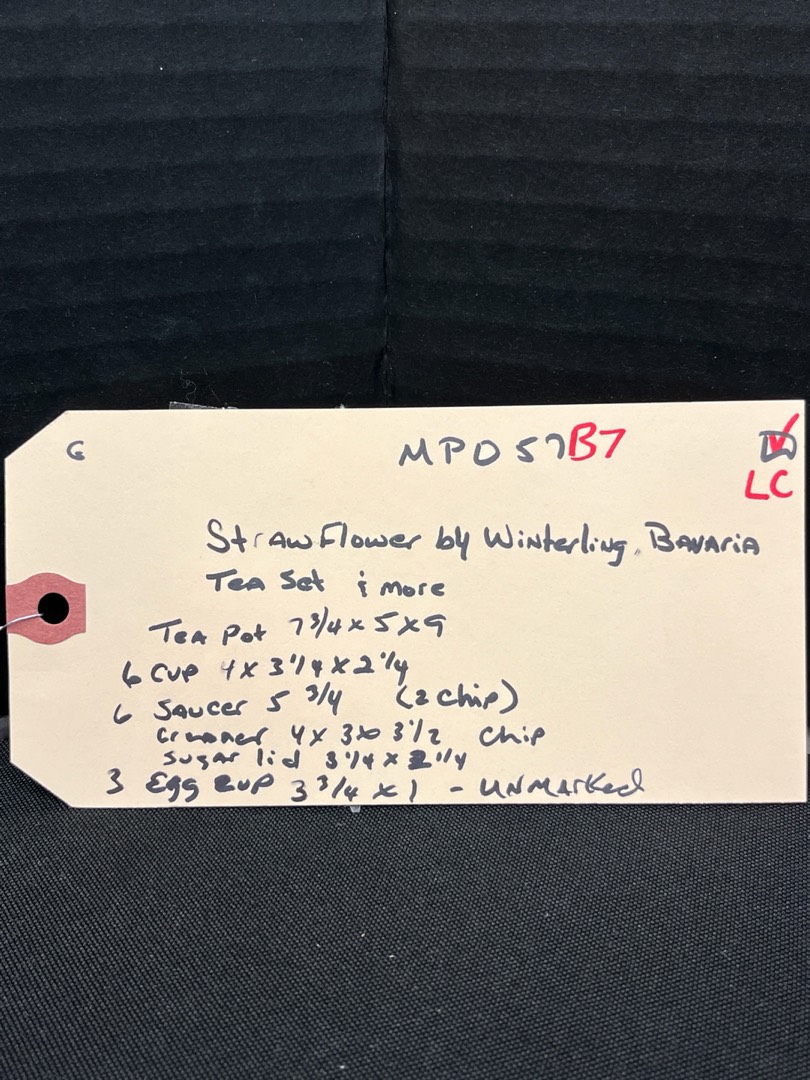 G MPD 57 B7
LC
Strawflower by Winterling, Bavaria
Tea Set & more
Tea Pot 7 3/4 x 5 x 9
6 Cup 4 x 3 1/4 x 2 1/4
6 Saucer 5 3/4 (2 chip)
Creamer 4 x 3 x 3 1/2 chip
Sugar lid 3 1/4 x 2 1/4
3 Egg Cup 3 3/4 x 1 - Unmarked